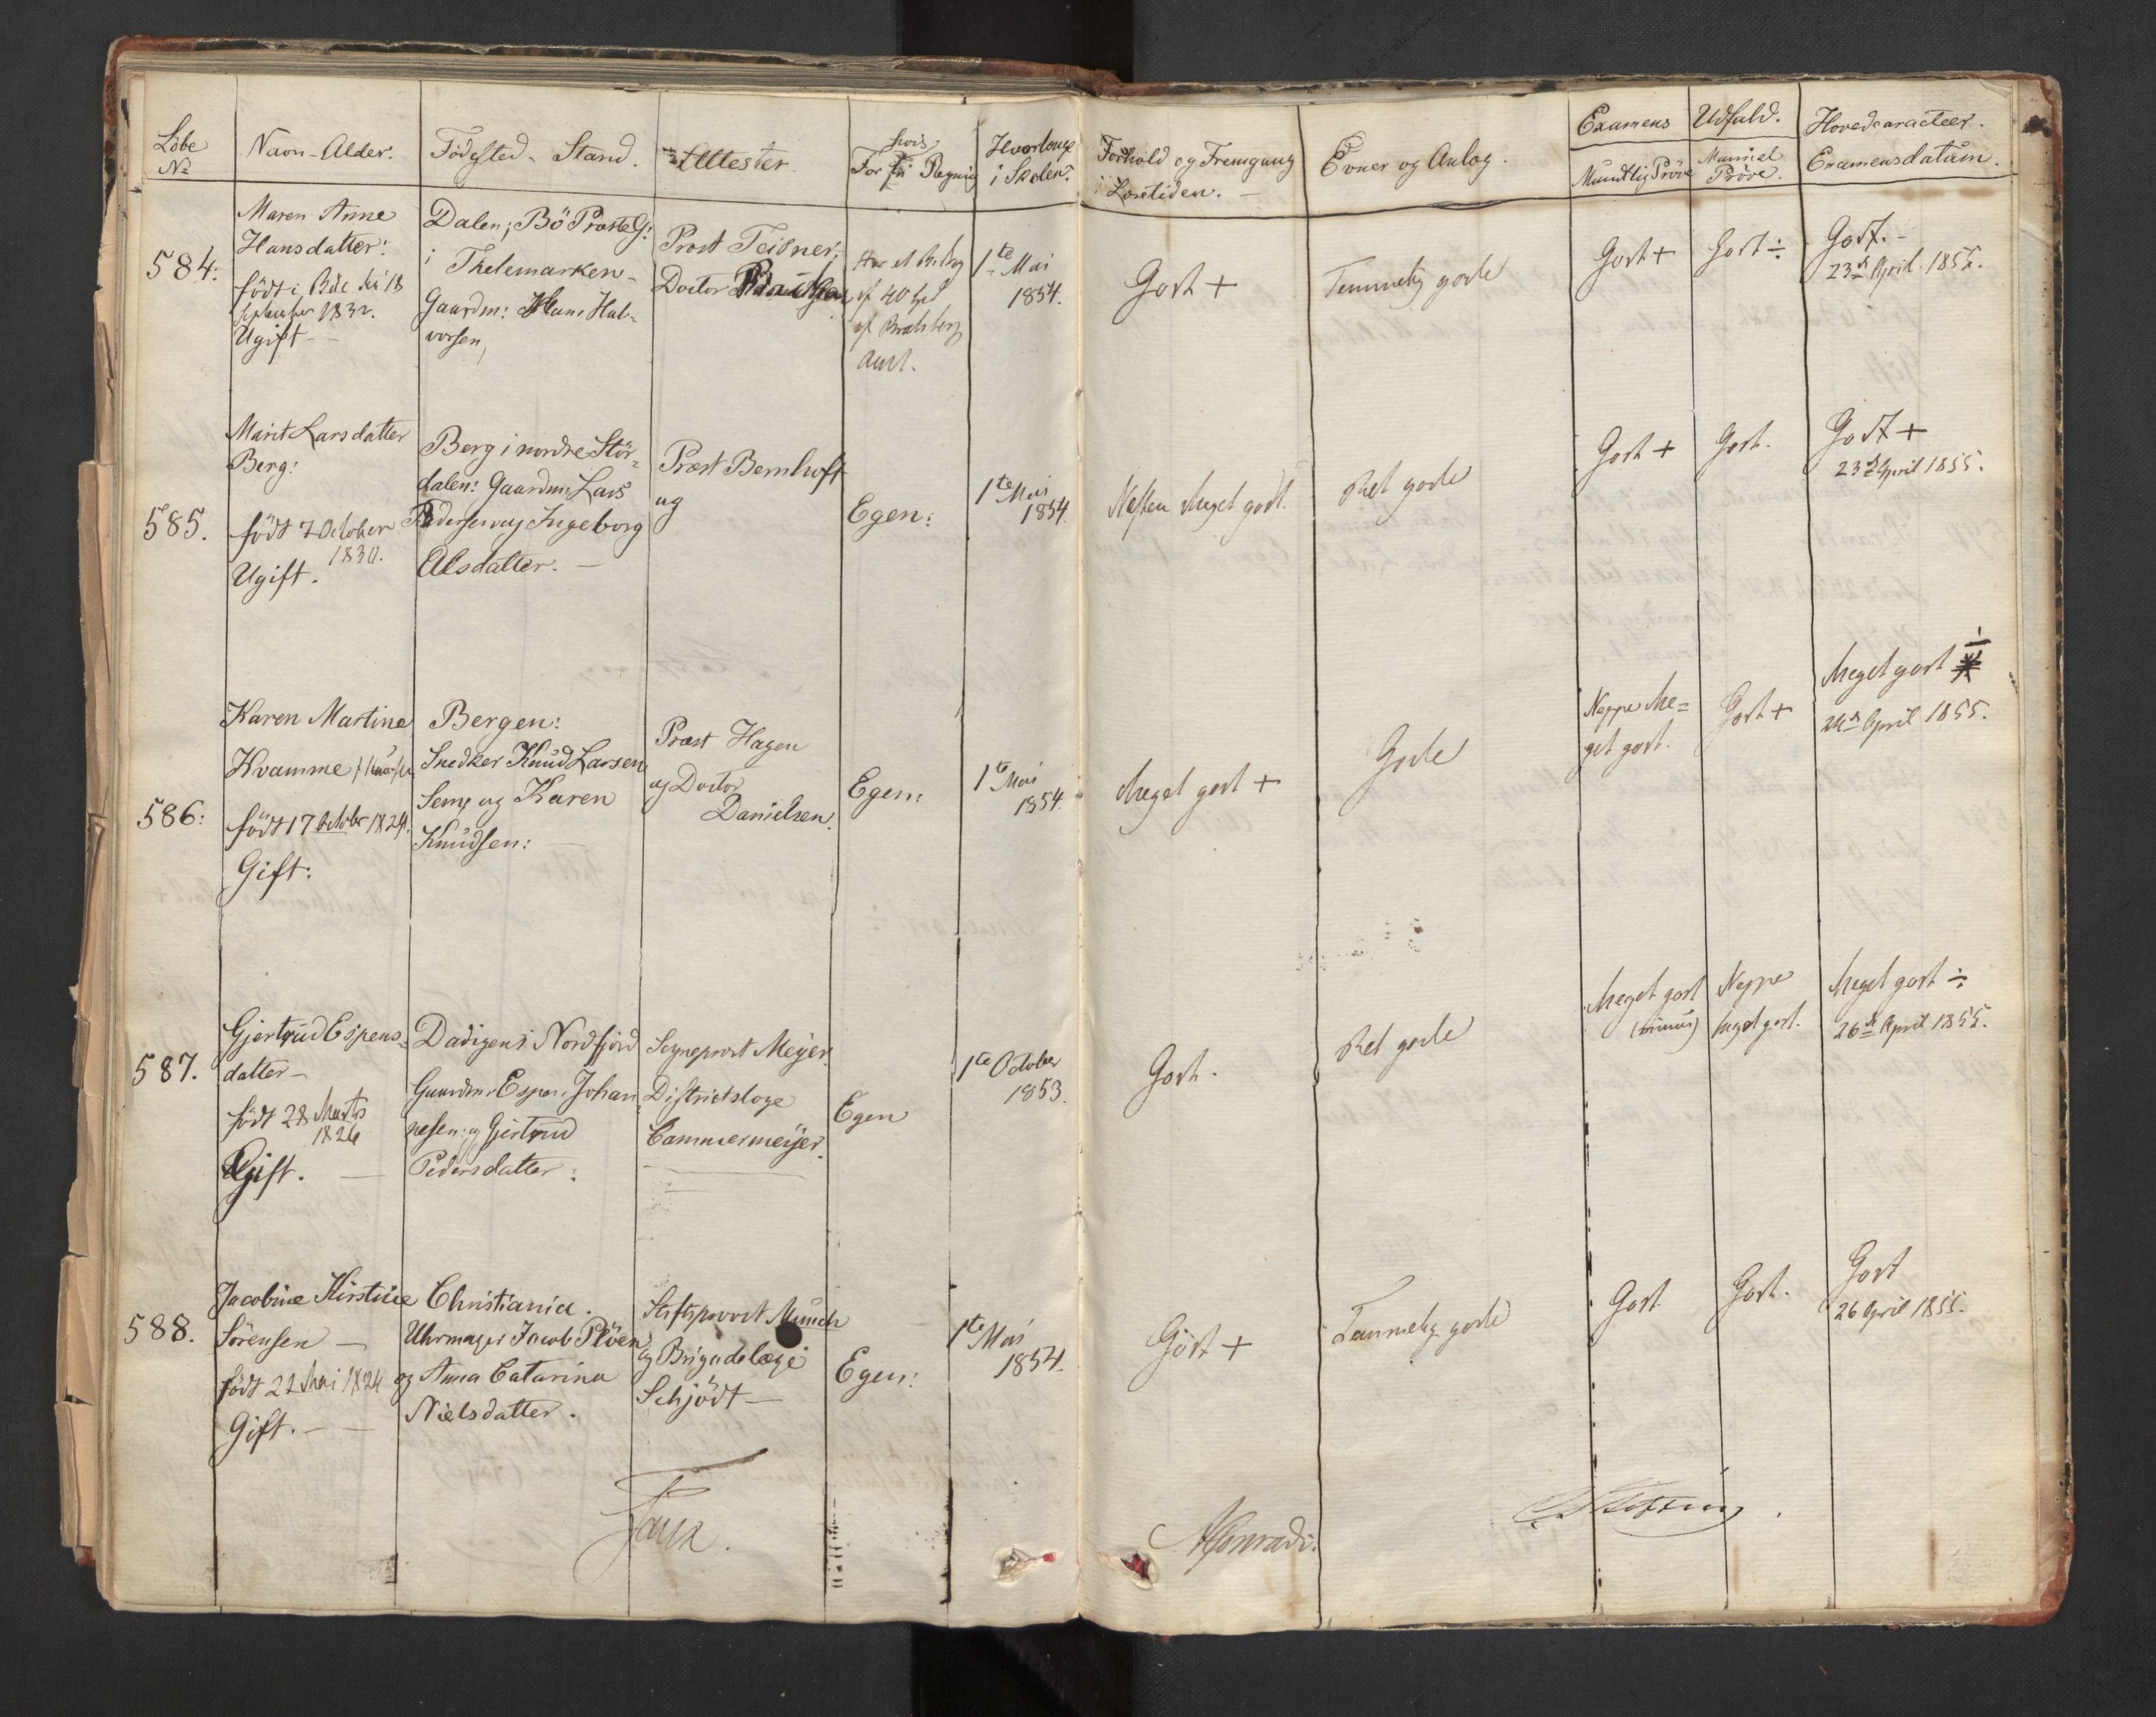 Löbe No
Navn-Alder.
Födested - Stand.
Attester.
Hvis
For Regning
Hvorlenge i Skolen?
Forhold og Fremgang
i Læretiden. -
Evner og Anlæg.
Examens Udfald.
Mundtlig Pröve
Manuel Pröve.
Hovedcaracteer.
Examensdatum.
584:
Maren Anne
Hansdatter:
född i
September 1832.
Ugift -
Dalen; Bö Præsteg:
i Thelemarken -
Gaardm: Hans Hal-
vorsen,
Prost Teisner,
Doctor
af 40
af Bratsberg
Amt.
1te Mai
1854.
Godt +
Temmelig gode
Godt +
Godt ÷
Godt. -
23de April. 1855.
585.
Marit Larsdatter
Berg:
född 7 October
1830.
Ugift.
Berg i nordre Stör-
dalen: Gaardm Lars
Pedersen og Ingeborg
Olsdatter. -
Præst Bernhoft
og
Egen:
1te Mai
1854.
Nesten Meget godt.
Ret gode
Godt +
Godt.
Godt +
23de April 1855.
586:
Karen Martine
Hvamme
född 17 October 1824.
Gift:
Bergen:
Snedker Knud Larsen
Semp og Karen
Knudsen: -
Præst Hagen
og Doctor
Danielsen.
Egen:
1te Mai
1854.
Meget godt +
Gode
Neppe Me=
get godt.
Godt +
Meget godt ÷
24de April 1855.
587.
Gjertrud Espens-
datter -
född 28 Marts
1826
Gift. -
Dadigens Nordfjord
Gaardm. Espen Johan-
nesen: og Gjertrud
Pedersdatter:
Sogneprest Meyer.
Districtslæge
Cammermeyer.
Egen
1te October
1853.
Godt.
Ret gode
Meget godt
(minus)
Neppe
Meget godt.
Meget godt ÷
26de April 1855.
588.
Jacobine Kirstine
Sörensen -
född 22 Mai 1824
Gift. -
Christiania.
Uhrmager Jacob Plöen
og Anna Catarina
Nielsdatter.
Stiftsprovst Münch
og Brigadelæge
Schjödt -
Egen:
1te Mai
1854.
Godt +
Temmelig gode
Godt
Godt.
Godt
26 April 1855.
Faye.
AConradi.